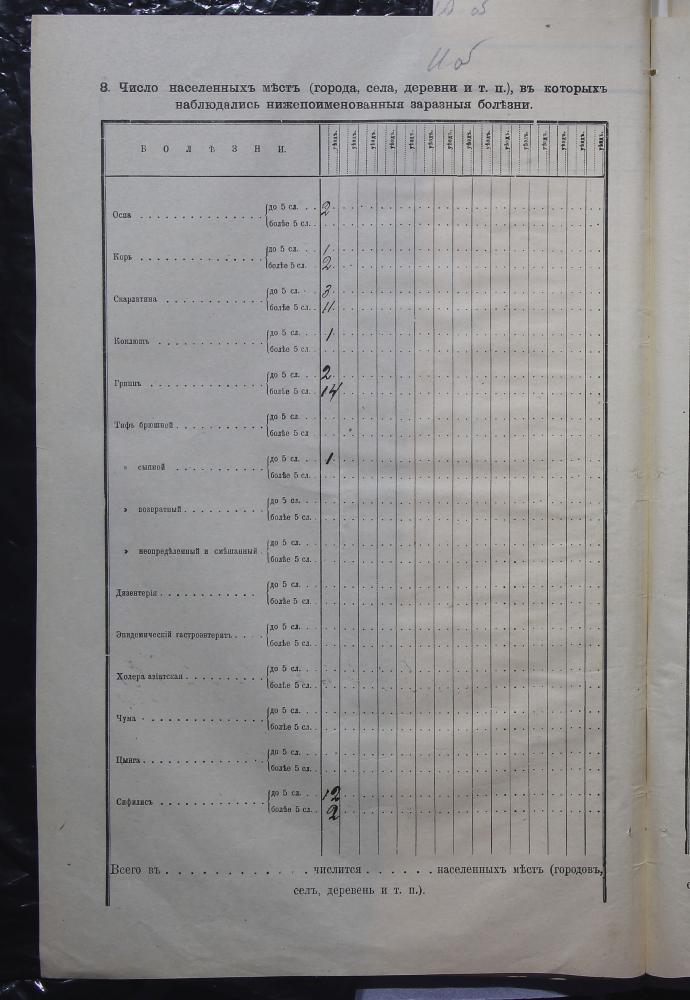 об
8. Число населенныхъ мѣстъ (города, села, деревни и т. п.), въ которыхъ
наблюдались нижепоименованныя заразныя болѣзни.
БОЛѢЗНИ. уѣздъ. уѣздъ. уѣздъ. уѣздъ. уѣздъ. уѣздъ. уѣздъ. уѣздъ. уѣздъ. уѣздъ. уѣздъ. уѣздъ. уѣздъ. уѣздъ. уѣздъ.
Оспа до 5 сл. 2
болѣе 5 сл.
Корь до 5 сл. 1
болѣе 5 сл. 2
Скарлатина до 5 сл. 3
болѣе 5 сл. 11
Коклюшъ до 5 сл. 1
болѣе 5 сл.
Гриппъ до 5 сл. 2
болѣе 5 сл. 14
Тифъ брюшной до 5 сл.
болѣе 5 сл
» сыпной до 5 сл. 1
болѣе 5 сл.
» возвратный до 5 сл.
болѣе 5 сл.
» неопредѣленный и смѣшанный до 5 сл.
болѣе 5 сл.
Дизентерія до 5 сл.
болѣе 5 сл.
Эпидемическій гастроэнтеритъ до 5 сл.
болѣе 5 сл.
Холера азіатская до 5 сл.
болѣе 5 сл.
Чума до 5 сл.
болѣе 5 сл.
Цынга до 5 сл.
болѣе 5 сл.
Сифилисъ до 5 сл. 12
болѣе 5 сл. 2
Всего въ . . . . . . . . . . . . числится . . . . . . населенныхъ мѣстъ (городовъ,
селъ, деревень и т. п.).